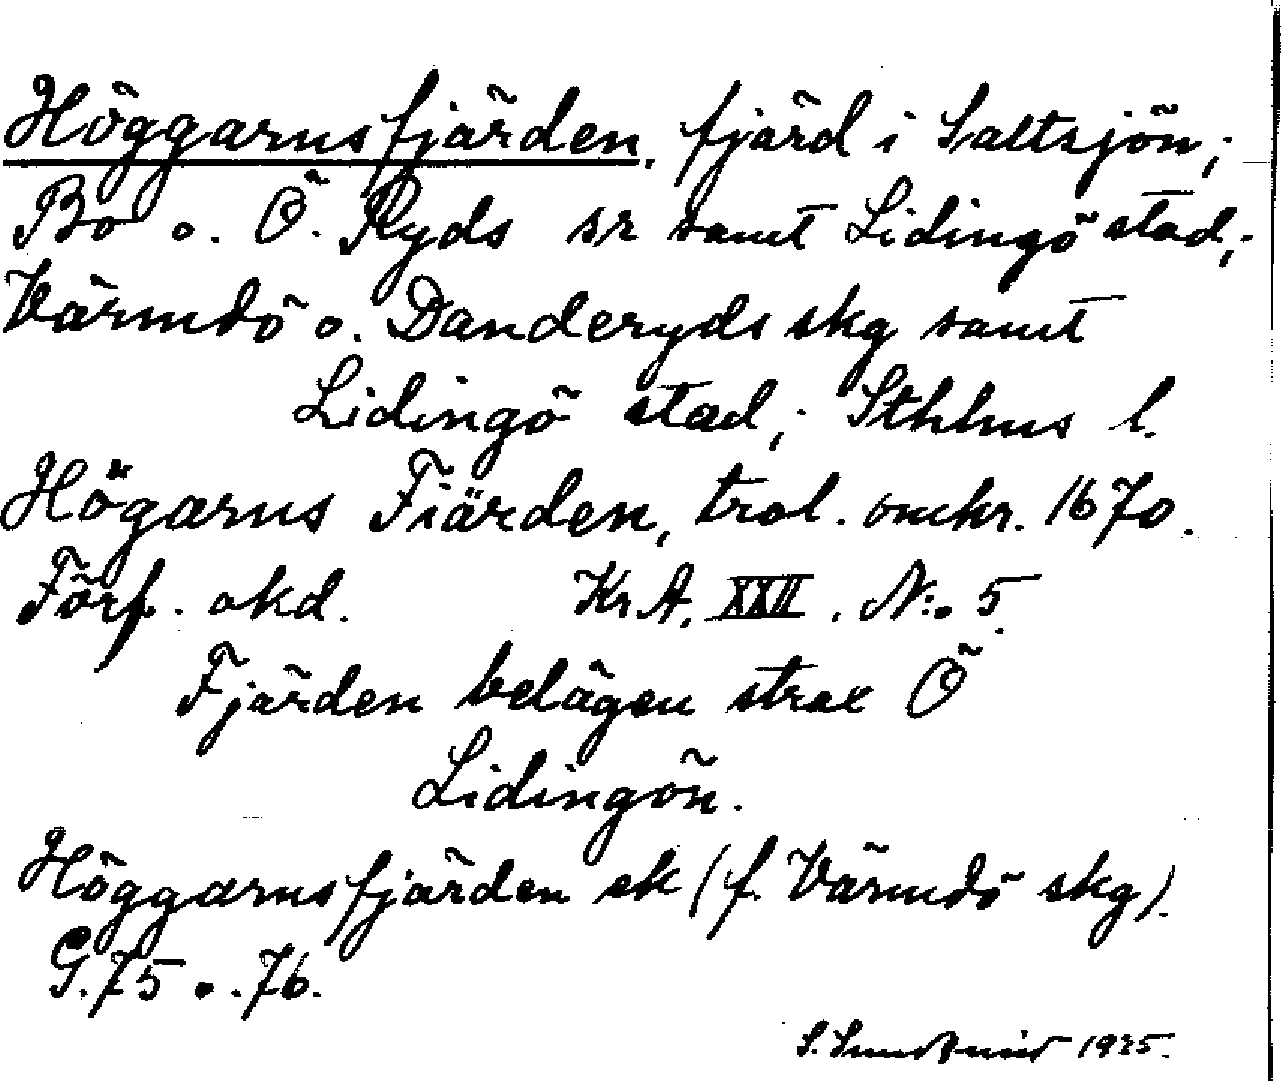 Höggarnsfjärden, fjärd i Saltsjön;
Bo o. Ö. Ryds sr samt Lidingö stad;
Värmdö o. Danderyds skg samt
Lidingö stad; Sthlms l.
Högarns Fiärden, trol. omkr. 1670.
Förf. okd. Kr.A. XXII. N:o 5.
Fjärden belägen strax Ö
Lidingön.
Höggarnsfjärden ek (f. Värmdö skg).
G. 75 o. 76.
S. 1925.